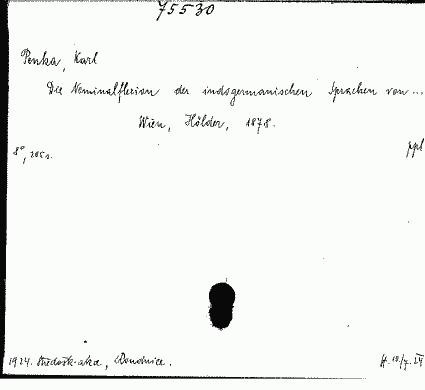 75530
Penka, Karl
Die Nominalflexion der indogermanischen Sprachen von ...
Wien, Hölder, 1878.
8°, 205 s.
ppl
1924. Středošk. aka, Roudnice.
H. 10/7. 24